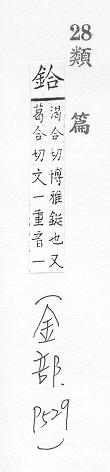 28 類篇
鉿
渴合切博雅鋌也又
葛合切文一重音一
(金部. P529)